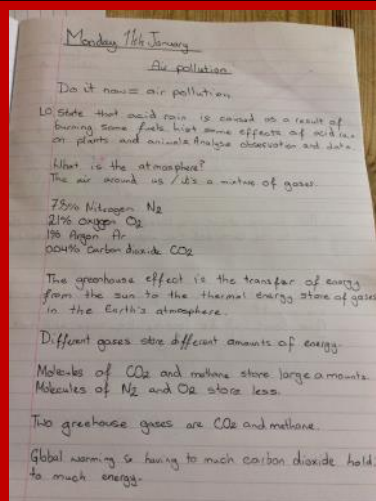 Monday 11th January
Air pollution
Do it now = air pollution
LO State that acid rain is caused as a result of
burning some fuels. List some effects of acid rain
on plants and animals. Analyse observation and data.
What is the atmosphere?
The air around us / it's a mixture of gases.
78% Nitrogen N2
21% oxygen O2
1% Argon Ar
0.04% Carbon dioxide CO2
The greenhouse effect is the transfer of energy
from the sun to the thermal energy store of gases
in the Earth's atmosphere.
Different gases store different amounts of energy.
Molecules of CO2 and methane store large amounts.
Molecules of N2 and O2 store less.
Two greehouse gases are CO2 and methane.
Global warming is having to much carbon dioxide hold
to much energy.